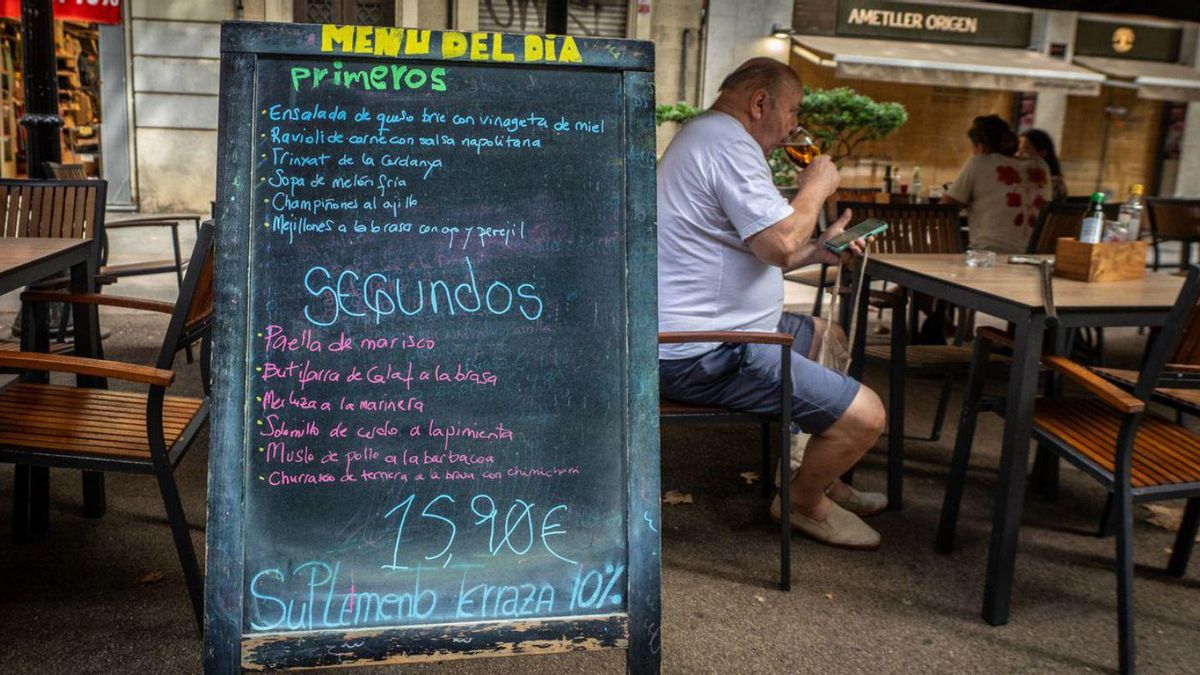 MENU DEL DIA
primeros
· Ensalada de queso brie con vinagreta de miel
· Ravioli de carne con salsa napolitana
· Trinxat de la Cerdanya
· Sopa de melón fría
· Champiñones al ajillo
· Mejillones a la brasa con ajo y perejil
SEGUNDOS
· Paella de marisco
· Butifarra de Calaf a la brasa
· Merluza a la marinera
· Solomillo de cerdo a la pimienta
· Muslo de pollo a la barbacoa
· Churrasco de ternera a la brasa con chimichurri
15,90€
Suplemento Terraza 10%
AMETLLER ORIGEN